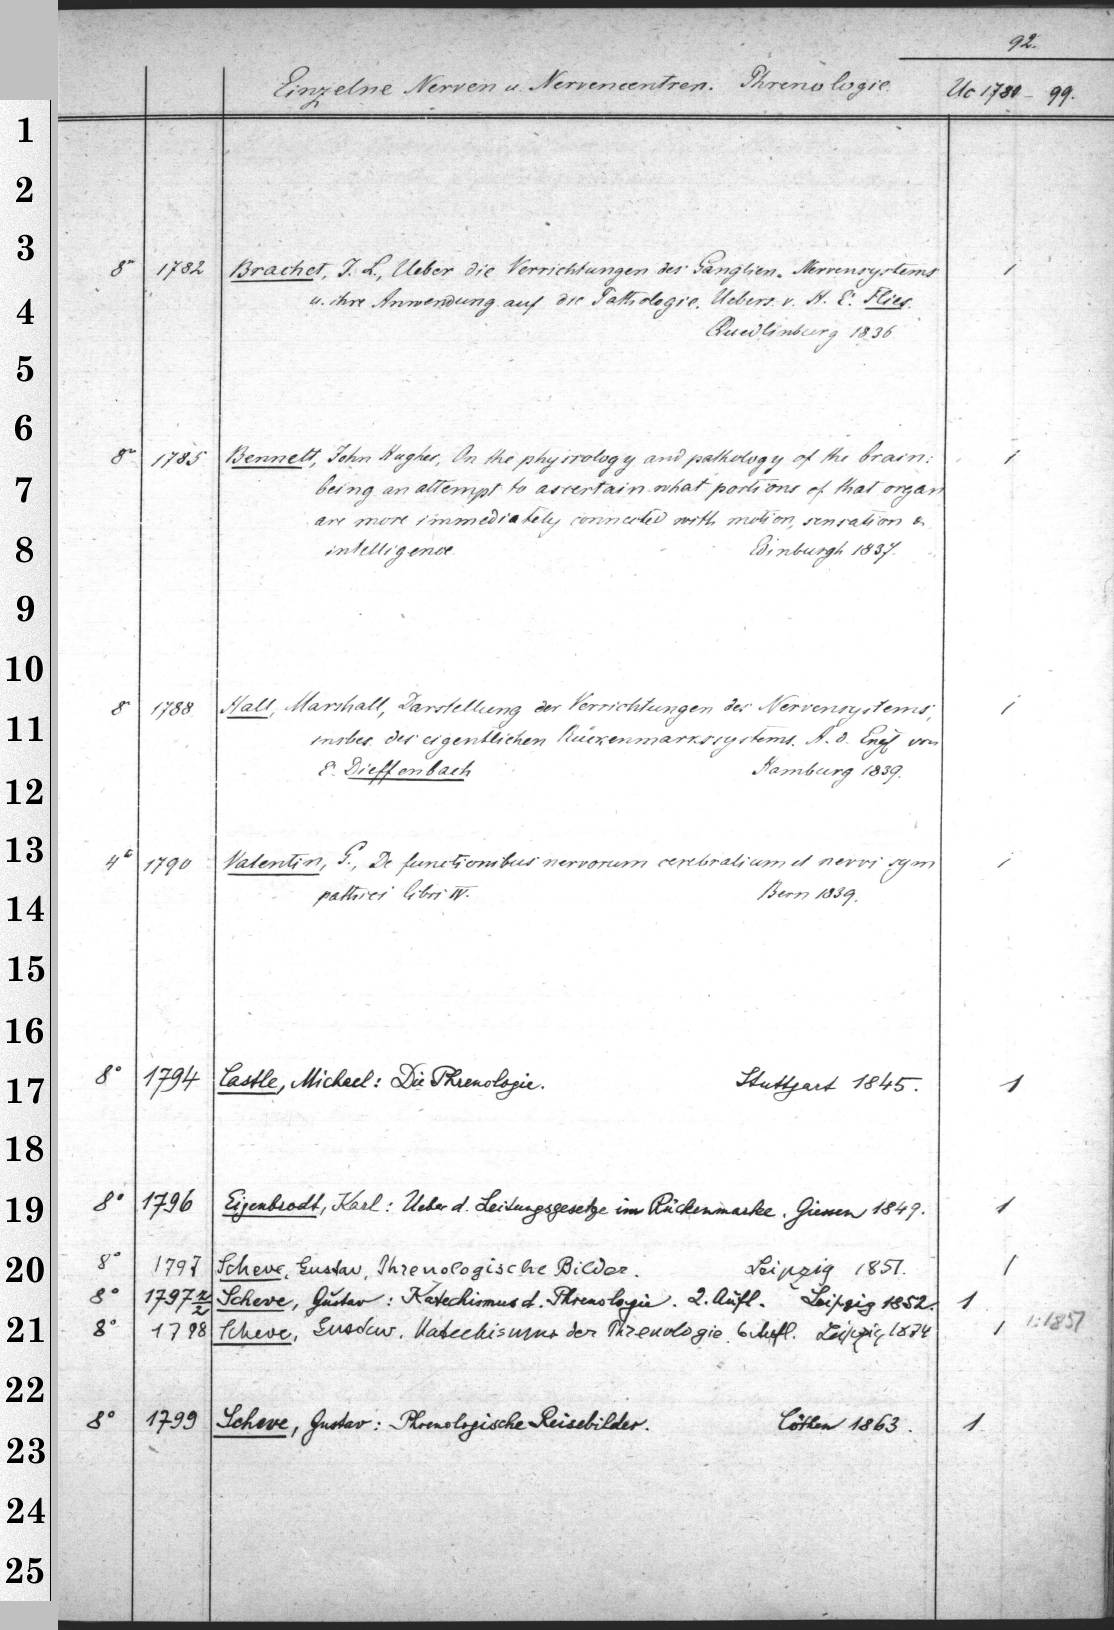 92.
Einzelne Nerven u. Nervencentren. Phrenologie. Uc 1780 - 99.
1
2
3
8° 1782 Brachet, J. L., Ueber die Verrichtungen des Ganglien-Nervensystems 1
4
u. ihre Anwendung auf die Pathologie. Uebers. v. H. E. Flies.
Quedlinburg 1836
5
6
8° 1785 Bennett, John Hughes, On the physiology and pathology of the brain: 1
7
being an attempt to ascertain what portions of that organ
are more immediately connected with motion, sensation &
8
intelligence. Edinburgh 1837.
9
10
8° 1788 Hall, Marshall, Darstellung der Verrichtungen des Nervensystems, 1
11
insbes. des eigentlichen Rückenmarkssystems. A. d. Engl von
E. Dieffenbach Hamburg 1839.
12
13
4° 1790 Valentin, G., De functionibus nervorum cerebralium et nervi sym 1
pathici libri IV. Bern 1839.
14
15
16
8° 1794 Castle, Michael: Die Phrenologie. Stuttgart 1845. 1
17
18
19
8° 1796 Eigenbrodt, Karl: Ueber d. Leitungsgesetze im Rückenmarke. Giessen 1849. 1
20
8° 1797 Scheve, Gustav, Phrenologische Bilder. Leipzig 1851. 1
8° 1797 n/2 Scheve, Gustav: Katechismus d. Phrenologie. 2. Aufl. Leipzig 1852. 1
21
8° 1798 Scheve, Gustav. Katechismus der Phrenologie 6. Aufl. Leipzig 1874 1 1:1851
22
8° 1799 Scheve, Gustav: Phrenologische Reisebilder. Cöthen 1863. 1
23
24
25